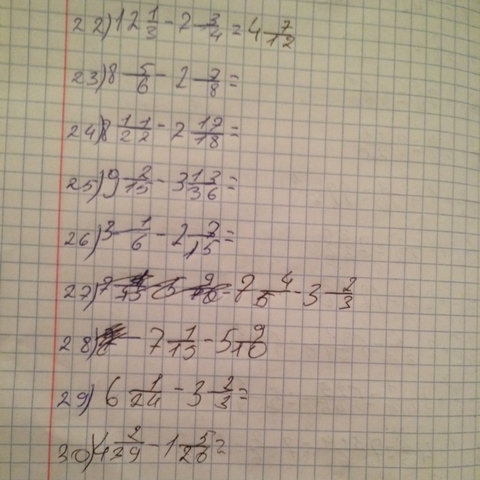 22) 12 1/3 - 2 3/4 = 4 7/12
23) 8 5/6 - 2 7/8 =
24) 8 11/22 - 2 17/18 =
25) 9 2/15 - 3 13/36 =
26) 3 1/6 - 2 2/15 =
27) 8 4/5 - 3 2/3
28) 7 1/15 - 5 9/10
29) 6 1/24 - 3 2/3 =
30) 4 2/29 - 1 5/26 =